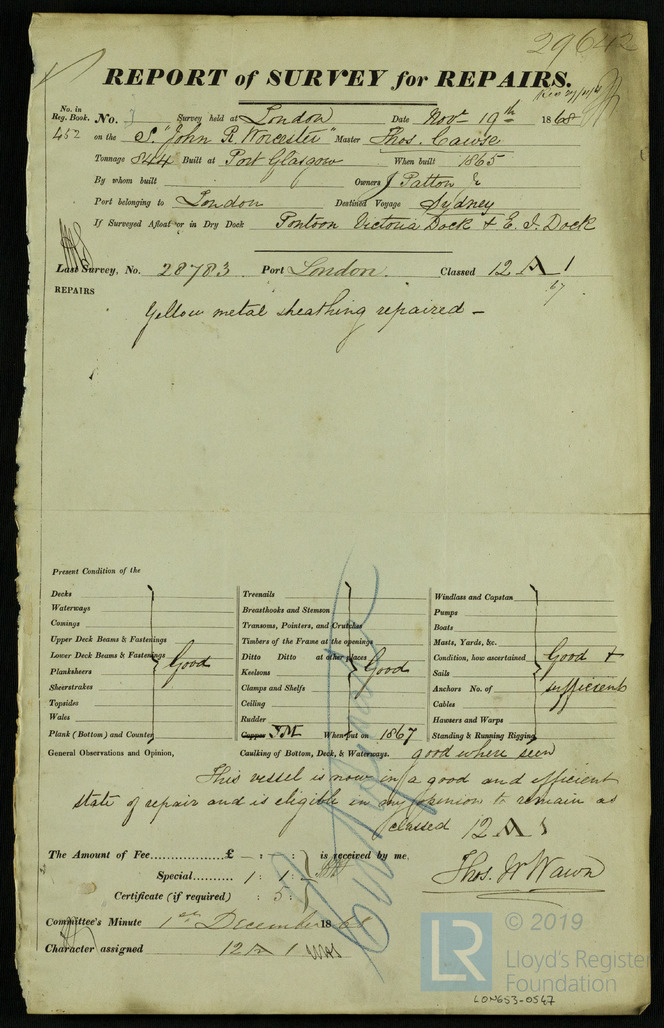 29642
REPORT of SURVEY for REPAIRS.
No. in Reg. Book. No. Survey held at London Date Novr 19th 1868
452 on the S. "John R. Worcester" Master Thos. Cawse
Tonnage 844 Built at Port Glasgow When built 1865
By whom built Owners J Patton &
Port belonging to London Destined Voyage Sydney
If Surveyed Afloat or in Dry Dock Pontoon Victoria Dock & E. I. Dock
Last Survey, No. 28783 Port London. Classed 12 A 1
67
REPAIRS
Yellow metal sheathing repaired —
Present Condition of the
Decks
Waterways
Comings
Upper Deck Beams & Fastenings
Lower Deck Beams & Fastenings Good
Planksheers
Sheerstrakes
Topsides
Wales
Plank (Bottom) and Counter
Treenails
Breasthooks and Stemson
Transoms, Pointers, and Crutches
Timbers of the Frame at the openings
Ditto Ditto at other places Good
Keelsons
Clamps and Shelfs
Ceiling
Rudder
Copper YM When put on 1867
Windlass and Capstan
Pumps
Boats
Masts, Yards, &c.
Condition, how ascertained Good &
Sails
Anchors No. of sufficient
Cables
Hawsers and Warps
Standing & Running Rigging
General Observations and Opinion, Caulking of Bottom, Deck, & Waterways. good where seen
This vessel is now in a good and efficient
state of repair and is eligible in my opinion to remain as
classed 12 A 1
The Amount of Fee.................£ — : : is received by me,
Special......... 1 : 1 :
Certificate (if required) : 5 :
Thos. W Wawn
Committee's Minute 1st December 1868
Character assigned 12 A 1
© 2019
LR
Lloyd's Register
Foundation
LON653-0547